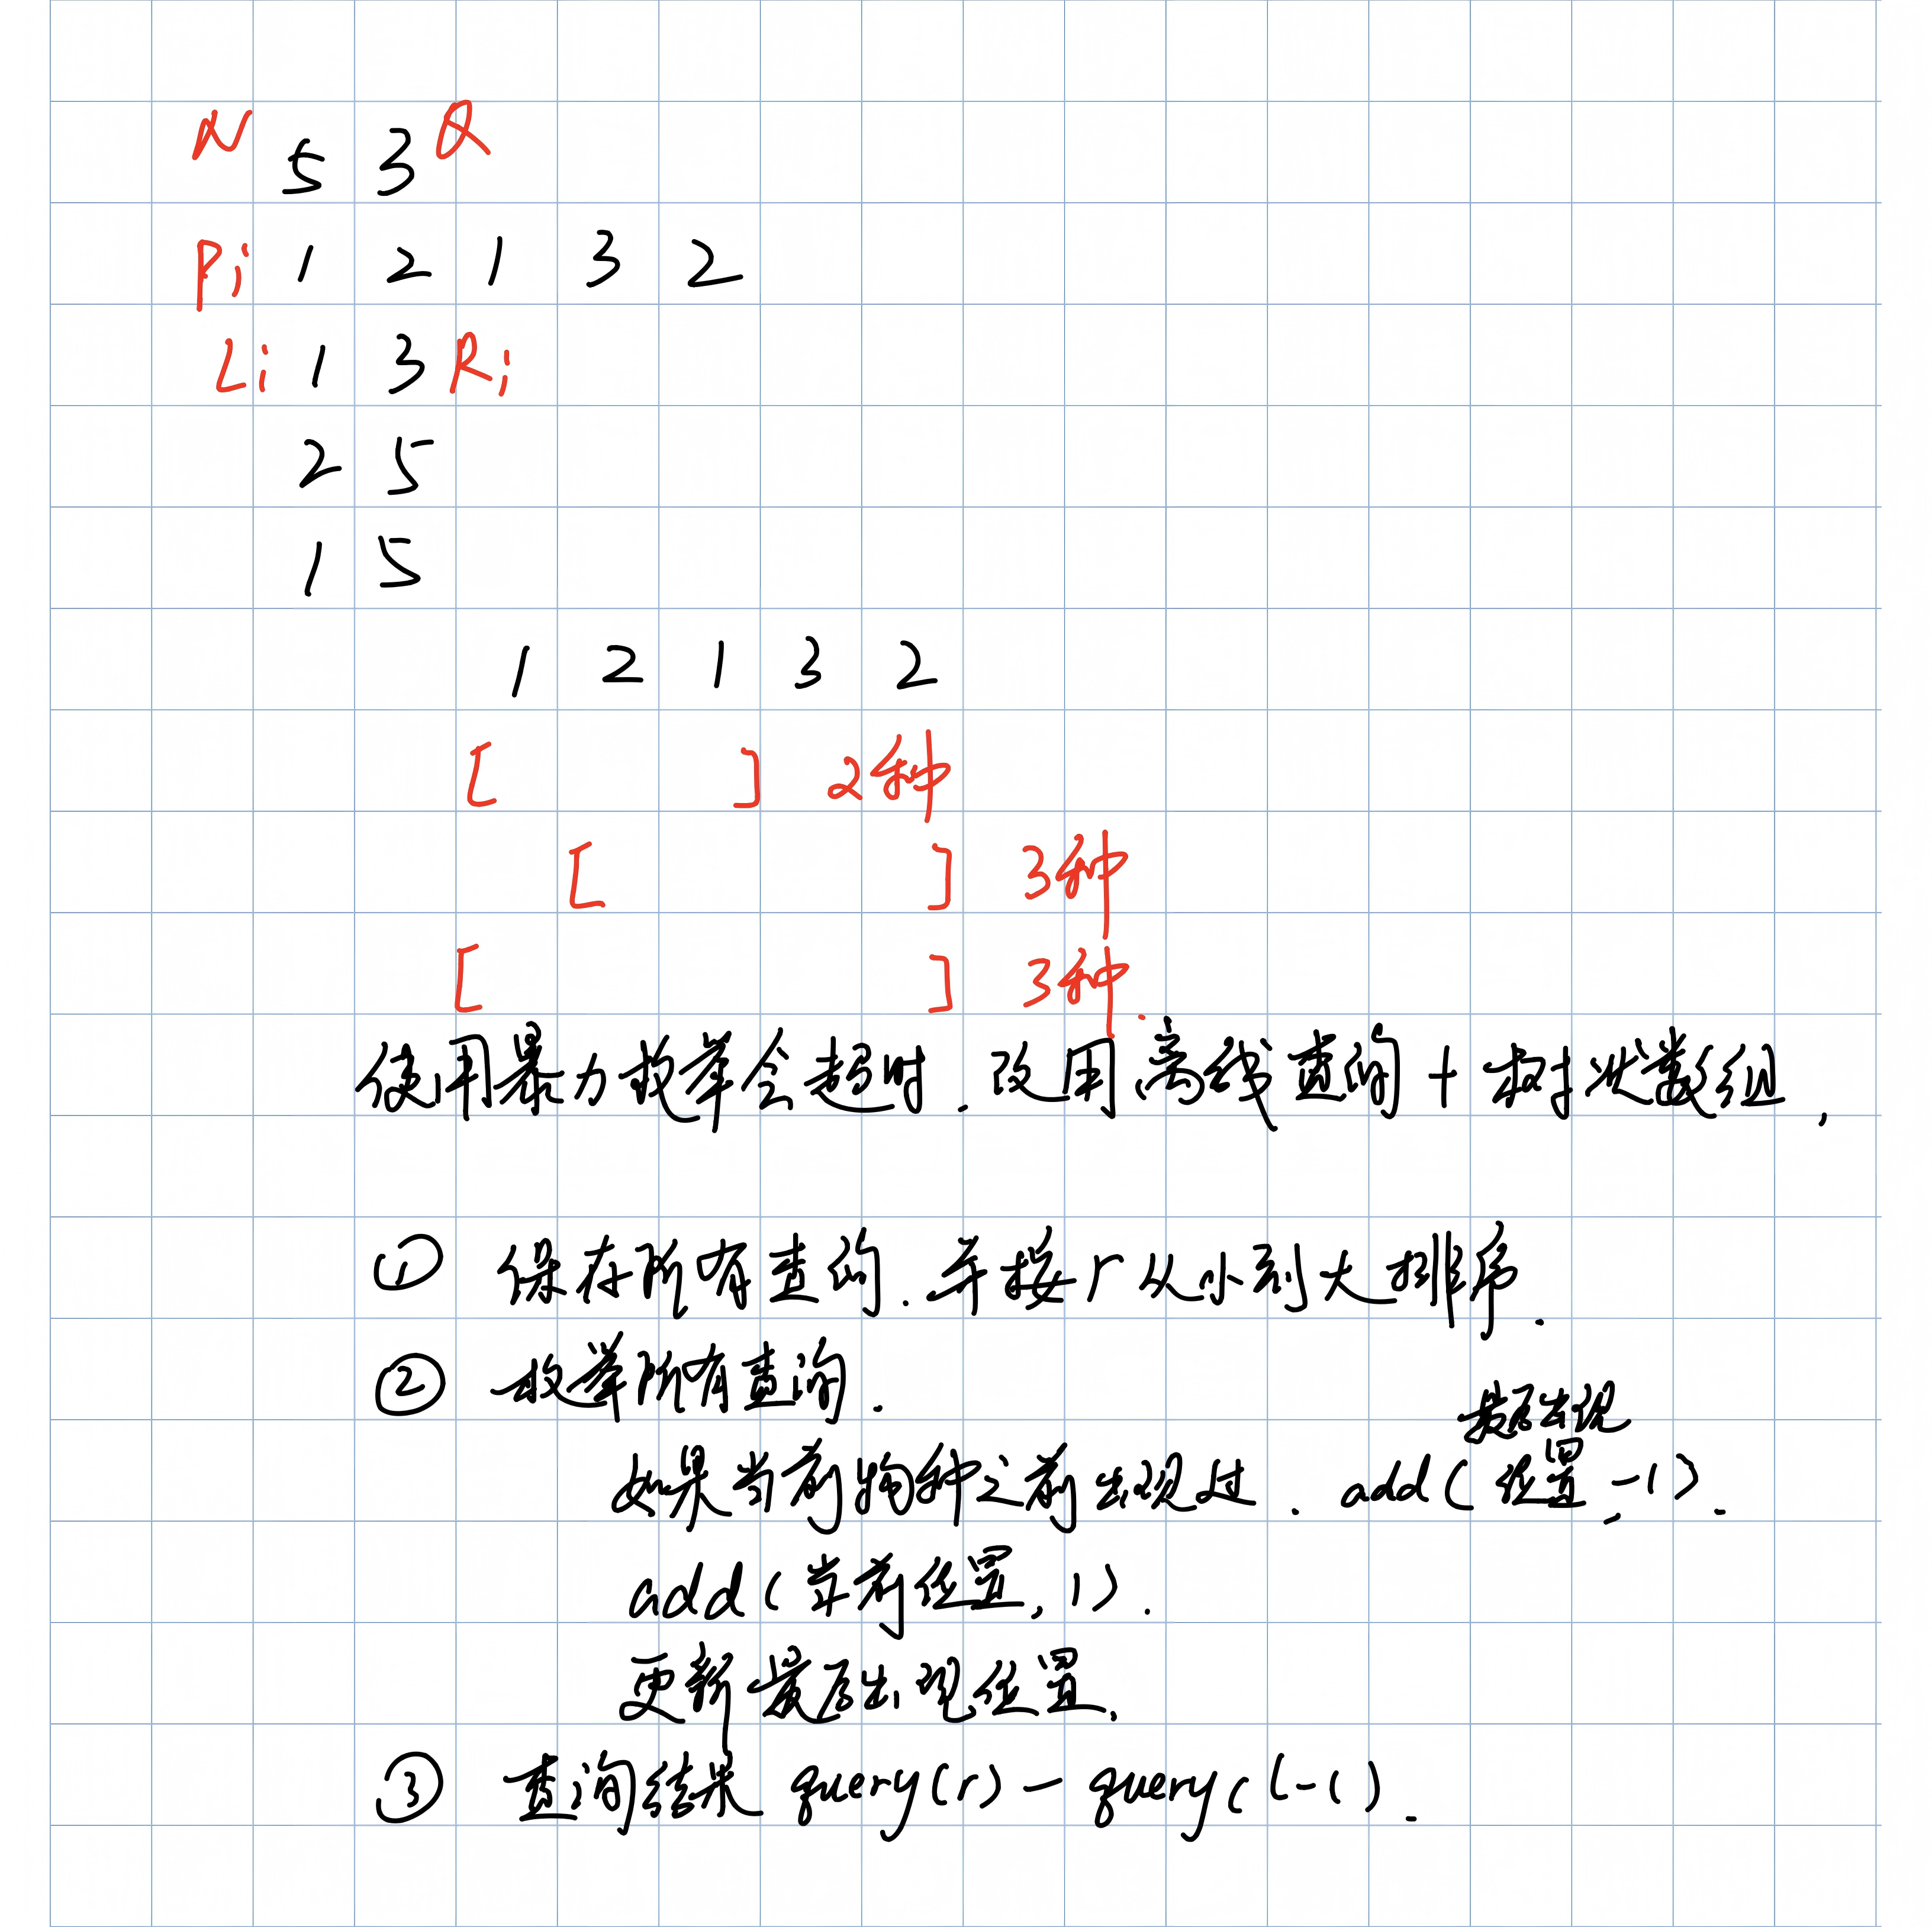 N 5 3 Q
Pi 1 2 1 3 2
Li 1 3 Ri
2 5
1 5
1 2 1 3 2
[ ] 2种
[ ] 3种
[ ] 3种.
使用暴力枚举会超时.改用离线查询+树状数组.
① 保存所有查询.并按r从小到大排序.
② 枚举所有查询.
最后出现
如果当前物种之前出现过.add(位置,-1).
add(当前位置,1).
更新最后出现位置.
③ 查询结果 query(r)-query(l-1).